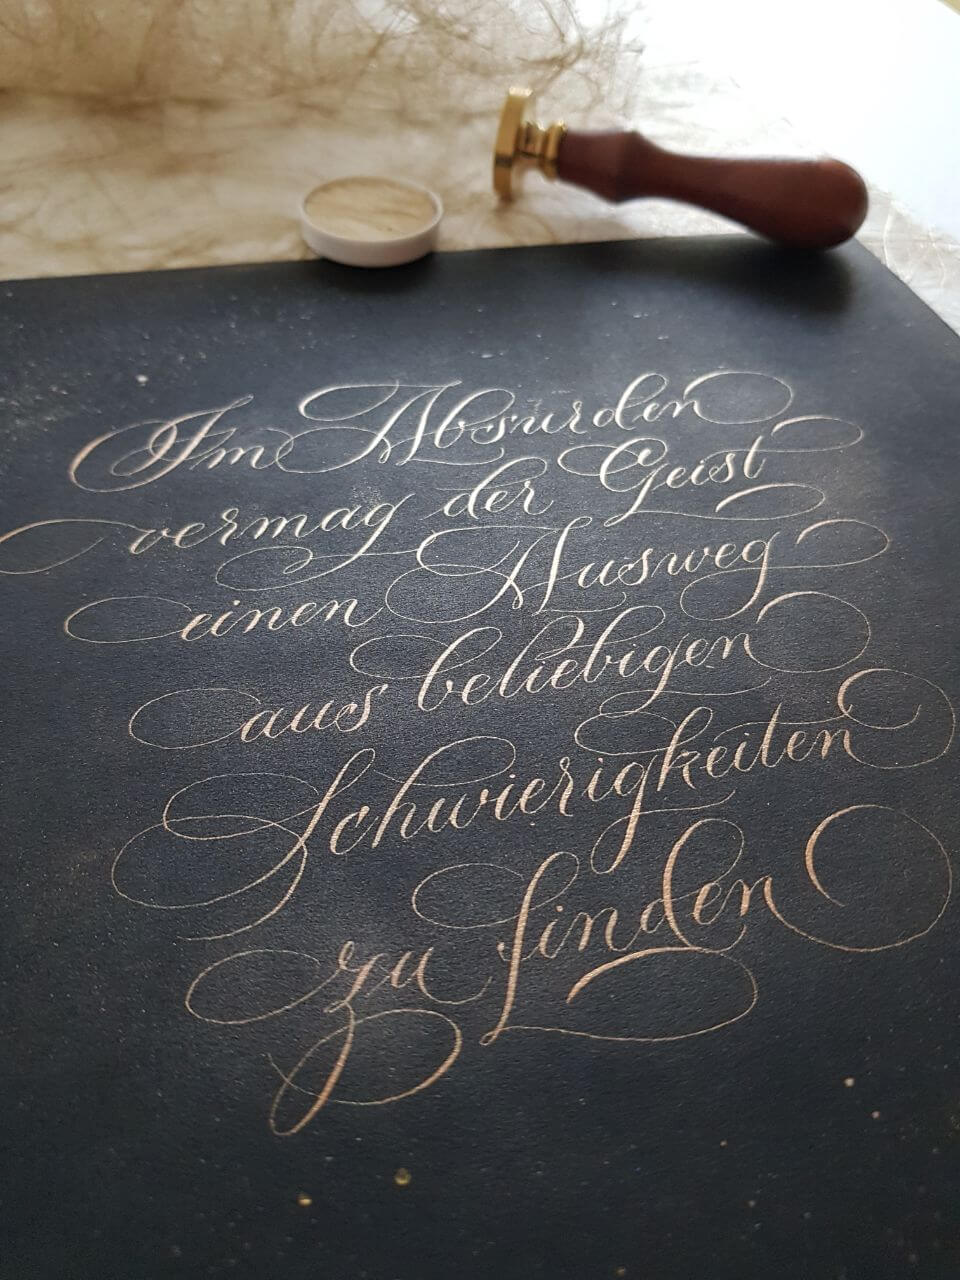 Im Absurden
vermag der Geist
einen Ausweg
aus beliebigen
Schwierigkeiten
zu finden